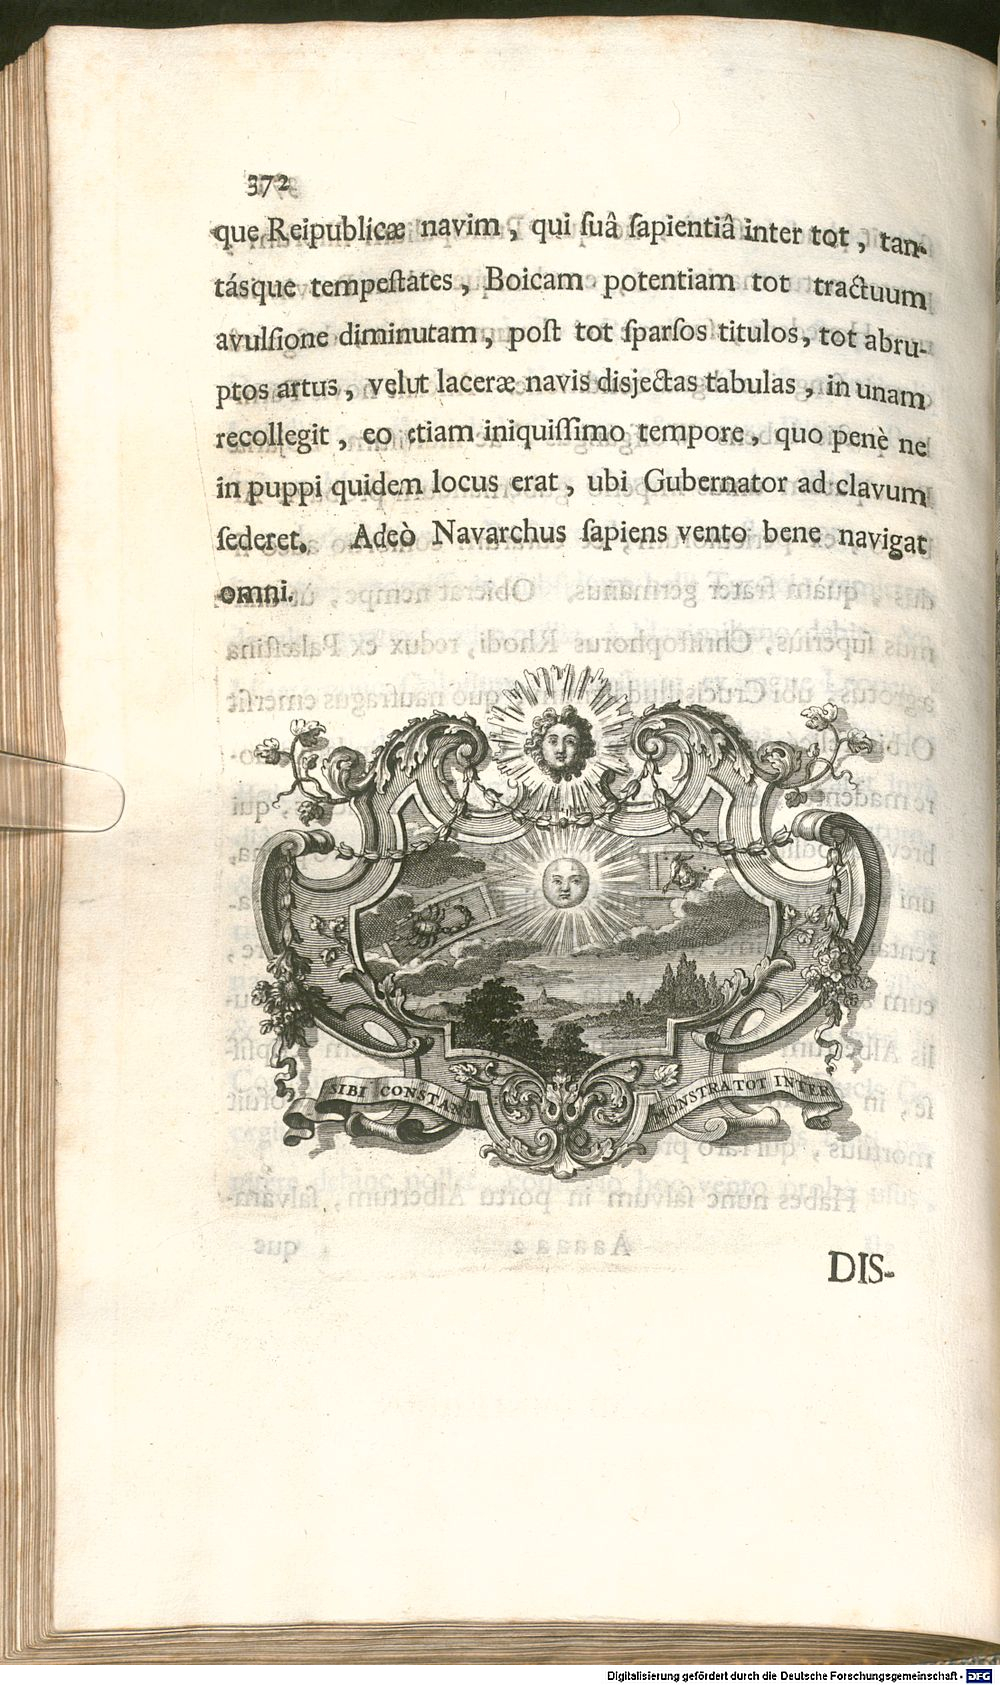 372
que Reipublicæ navim, qui ſuâ ſapientiâ inter tot, tan-
tásque tempeſtates, Boicam potentiam tot tractuum
avulſione diminutam, poſt tot ſparſos titulos, tot abru-
ptos artus, velut laceræ navis disjectas tabulas, in unam
recollegit, eo etiam iniquiſſimo tempore, quo penè ne
in puppi quidem locus erat, ubi Gubernator ad clavum
ſederet. Adeò Navarchus ſapiens vento bene navigat
omni.
SIBI CONSTANS MONSTRA TOT INTER
DIS-
Digitalisierung gefördert durch die Deutsche Forschungsgemeinschaft - DFG